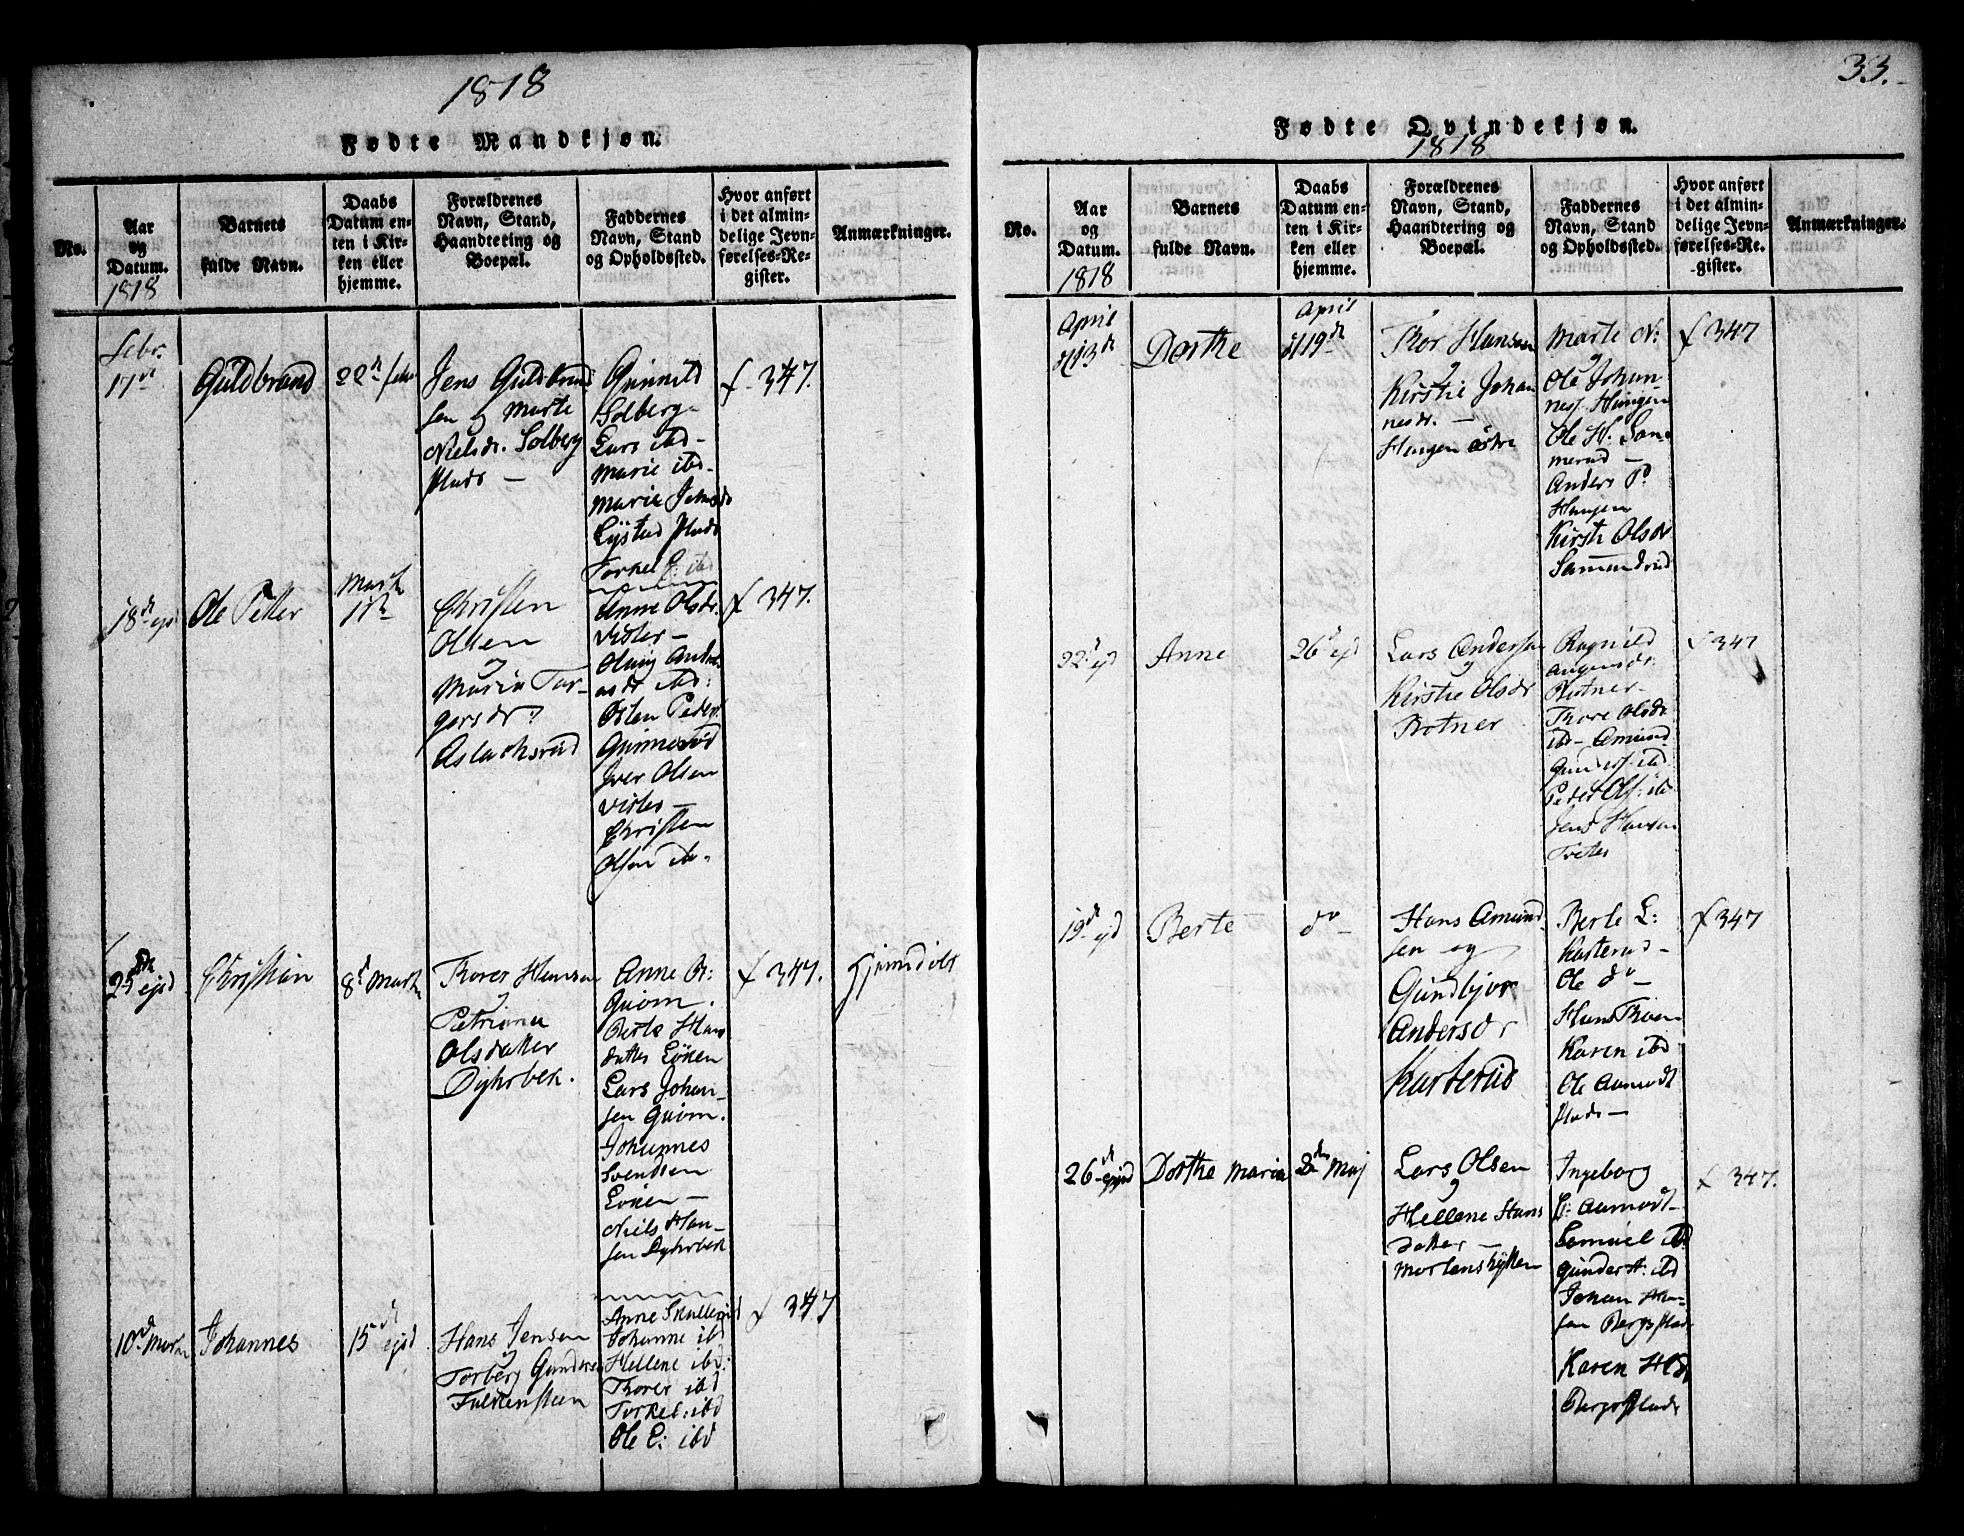 1818
Fødte Mandkjøn.
No.
Aar
og
Datum.
1818
Barnets
fulde Navn.
Daabs
Datum en-
ten i Kir-
ken eller
hjemme.
Forældrenes
Navn, Stand,
Haandtering og
Boepæl.
Faddernes
Navn, Stand
og Opholdssted.
Hvor anført
i det almin-
delige Jevn-
førelses-Re-
gister.
Anmærkninger.
Febr.
17de
Guldbrand
22de febr
Jens Guldbrand
sen og Marte
Nielsdr. Solberg
plads —
Gunnild
Solberg
Lars ibd —
Marie ibd.
Marie Jensdr
Lystad Plads
Torkel ibd
f 347.
18de ejd
Ole Petter
Marti
1ste
Christen
Olsen
og
Maria Tor-
gersdr:
Aslachsrud
Anne Olsdr.
Vister —
ibd:
Osten Peders.
Iver Olsen
Vister —
Christen
Olsen ibd.
f 347.
25de ejsd
Christian
8de Marti
Thorer Hansen
og
Petriana
Olsdatter
Dyhrbek.
Anne
Berte Hans
datter Löken
Lars Johan-
sen
Johannes
Svendsen
Löken —
Niels Han-
sen Dyhrbek
f 347.
10de Marti
Johannes
15de ejsd
Hans Jensen
og
Torberg Gunders
Falkensteen
Anne Skullerud
Johanne ibd
Hellene ibd:
Thorer ibd
Torkel: ibd
Ole E: ibd
f 347
33.
Fødte Qvindekjøn.
1818
No.
Aar
og
Datum.
1818
Barnets
fulde Navn.
Daabs
Datum en-
ten i Kir-
ken eller
hjemme.
Forældrenes
Navn, Stand,
Haandtering og
Boepæl.
Faddernes
Navn, Stand
og Opholdssted.
Hvor anført
i det almin-
delige Jevn-
førelses-Re-
gister.
Anmærkninger.
April
d 13de
Dorthe
April
d 19de
Thor Hansen
og
Kirstie Johan
nesdr. —
Haugen östre
Marte N:
Ole Johan-
nes. Haugen
Ole H. Sam
merud —
Anders P.
Haugen
Kirsti Olsdr
Samundrud
f 347
22de ejd
Anne
26de ejd
Lars Andersen
og
Kirstie Olsdr
Rotner
Ragnild
Rotner —
Thore Olsdr
ibd — Amund
Gunders. ibd
Peder Ols: ibd
Jens Hansen
f 347
19de ejd
Berte
do —
Hans Amund
sen og
Gundbjor
Andersdr
Karterud
Berte L:
Karterud —
Ole do —
Hans Thoen
Karen ibd
Ole Aamodt
plads —
f 347
26de ejsd
Dorthe Maria
3de Maj
Lars Olsen
og
Hellene Hans
datter —
Mortenshytten
Ingeborg
L: Aamodt —
Samuel ibd
Gunder ibd
Johan Han-
sen Bergsplads
Karen Hsdr
Bergsplads
f 347.